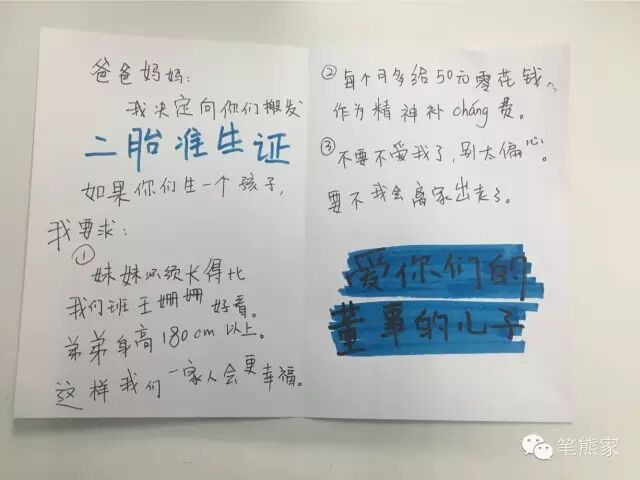 爸爸妈妈:
我决定向你们搬发
二胎准生证
如果你们生一个孩子,
我要求:
①
妹妹必须长得比
我们班王姗姗好看。
弟弟身高180cm以上。
这样我们一家人会更幸福。
②每个月多给50元零花钱,
作为精神补cháng费。
③不要不爱我了,别太偏心。
要不我会离家出走了。
爱你们的
董事的儿子
笔熊家